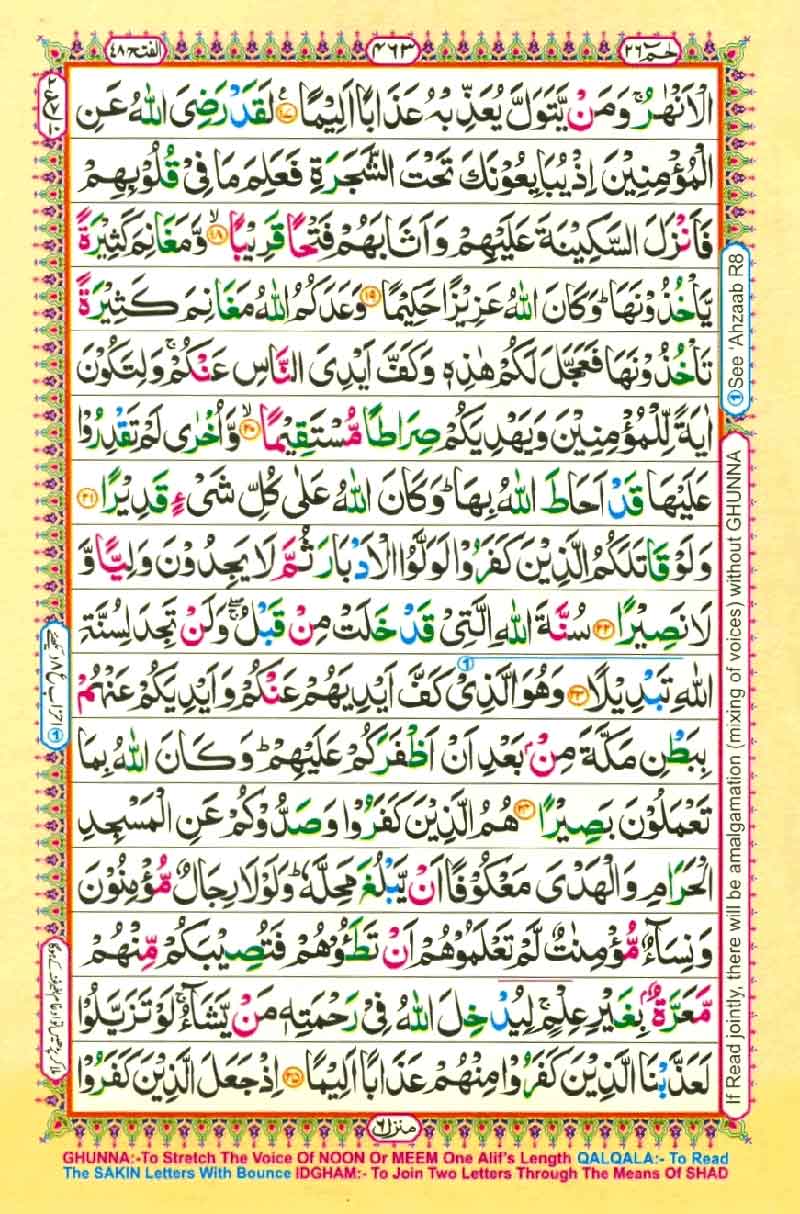 حٰمٓ ٢٦
٤٦٣
الفتح ٤٨
الْاَنْهٰرُ ۚ وَمَنْ يَّتَوَلَّ يُعَذِّبْهُ عَذَابًا اَلِيْمًا ﴿١٧﴾ لَقَدْ رَضِىَ اللّٰهُ عَنِ
الْمُؤْمِنِيْنَ اِذْ يُبَايِعُوْنَكَ تَحْتَ الشَّجَرَةِ فَعَلِمَ مَا فِىْ قُلُوْبِهِمْ
فَاَنْزَلَ السَّكِيْنَةَ عَلَيْهِمْ وَاَثَابَهُمْ فَتْحًا قَرِيْبًا ۙ﴿١٨﴾ وَّمَغَانِمَ كَثِيْرَةً
يَّاْخُذُوْنَهَا ؕ وَكَانَ اللّٰهُ عَزِيْزًا حَكِيْمًا ﴿١٩﴾ وَعَدَكُمُ اللّٰهُ مَغَانِمَ كَثِيْرَةً
تَاْخُذُوْنَهَا فَعَجَّلَ لَكُمْ هٰذِهٖ وَكَفَّ اَيْدِىَ النَّاسِ عَنْكُمْ ۚ وَلِتَكُوْنَ
اٰيَةً لِّلْمُؤْمِنِيْنَ وَيَهْدِيَكُمْ صِرَاطًا مُّسْتَقِيْمًا ۙ﴿٢٠﴾ وَّاُخْرٰى لَمْ تَقْدِرُوْا
عَلَيْهَا قَدْ اَحَاطَ اللّٰهُ بِهَا ؕ وَكَانَ اللّٰهُ عَلٰى كُلِّ شَىْءٍ قَدِيْرًا ﴿٢١﴾
وَلَوْ قَاتَلَكُمُ الَّذِيْنَ كَفَرُوْا لَوَلَّوُا الْاَدْبَارَ ثُمَّ لَا يَجِدُوْنَ وَلِيًّا وَّ
لَا نَصِيْرًا ﴿٢٢﴾ سُنَّةَ اللّٰهِ الَّتِىْ قَدْ خَلَتْ مِنْ قَبْلُ ۖۚ وَلَنْ تَجِدَ لِسُنَّةِ
اللّٰهِ تَبْدِيْلًا ﴿٢٣﴾ وَهُوَ الَّذِىْ كَفَّ اَيْدِيَهُمْ عَنْكُمْ وَاَيْدِيَكُمْ عَنْهُمْ
بِبَطْنِ مَكَّةَ مِنْۢ بَعْدِ اَنْ اَظْفَرَكُمْ عَلَيْهِمْ ؕ وَكَانَ اللّٰهُ بِمَا
تَعْمَلُوْنَ بَصِيْرًا ﴿٢٤﴾ هُمُ الَّذِيْنَ كَفَرُوْا وَصَدُّوْكُمْ عَنِ الْمَسْجِدِ
الْحَرَامِ وَالْهَدْىَ مَعْكُوْفًا اَنْ يَّبْلُغَ مَحِلَّهٗ ؕ وَلَوْلَا رِجَالٌ مُّؤْمِنُوْنَ
وَنِسَآءٌ مُّؤْمِنٰتٌ لَّمْ تَعْلَمُوْهُمْ اَنْ تَطَـُٔوْهُمْ فَتُصِيْبَكُمْ مِّنْهُمْ
مَّعَرَّةٌۢ بِغَيْرِ عِلْمٍ ۚ لِيُدْخِلَ اللّٰهُ فِىْ رَحْمَتِهٖ مَنْ يَّشَآءُ ۚ لَوْ تَزَيَّلُوْا
لَعَذَّبْنَا الَّذِيْنَ كَفَرُوْا مِنْهُمْ عَذَابًا اَلِيْمًا ﴿٢٥﴾ اِذْ جَعَلَ الَّذِيْنَ كَفَرُوْا
منزل ٦
①See 'Ahzaab R8
If Read jointly, there will be amalgamation (mixing of voices) without GHUNNA
GHUNNA:-To Stretch The Voice Of NOON Or MEEM One Alif's Length QALQALA:- To Read
The SAKIN Letters With Bounce IDGHAM:- To Join Two Letters Through The Means Of SHAD